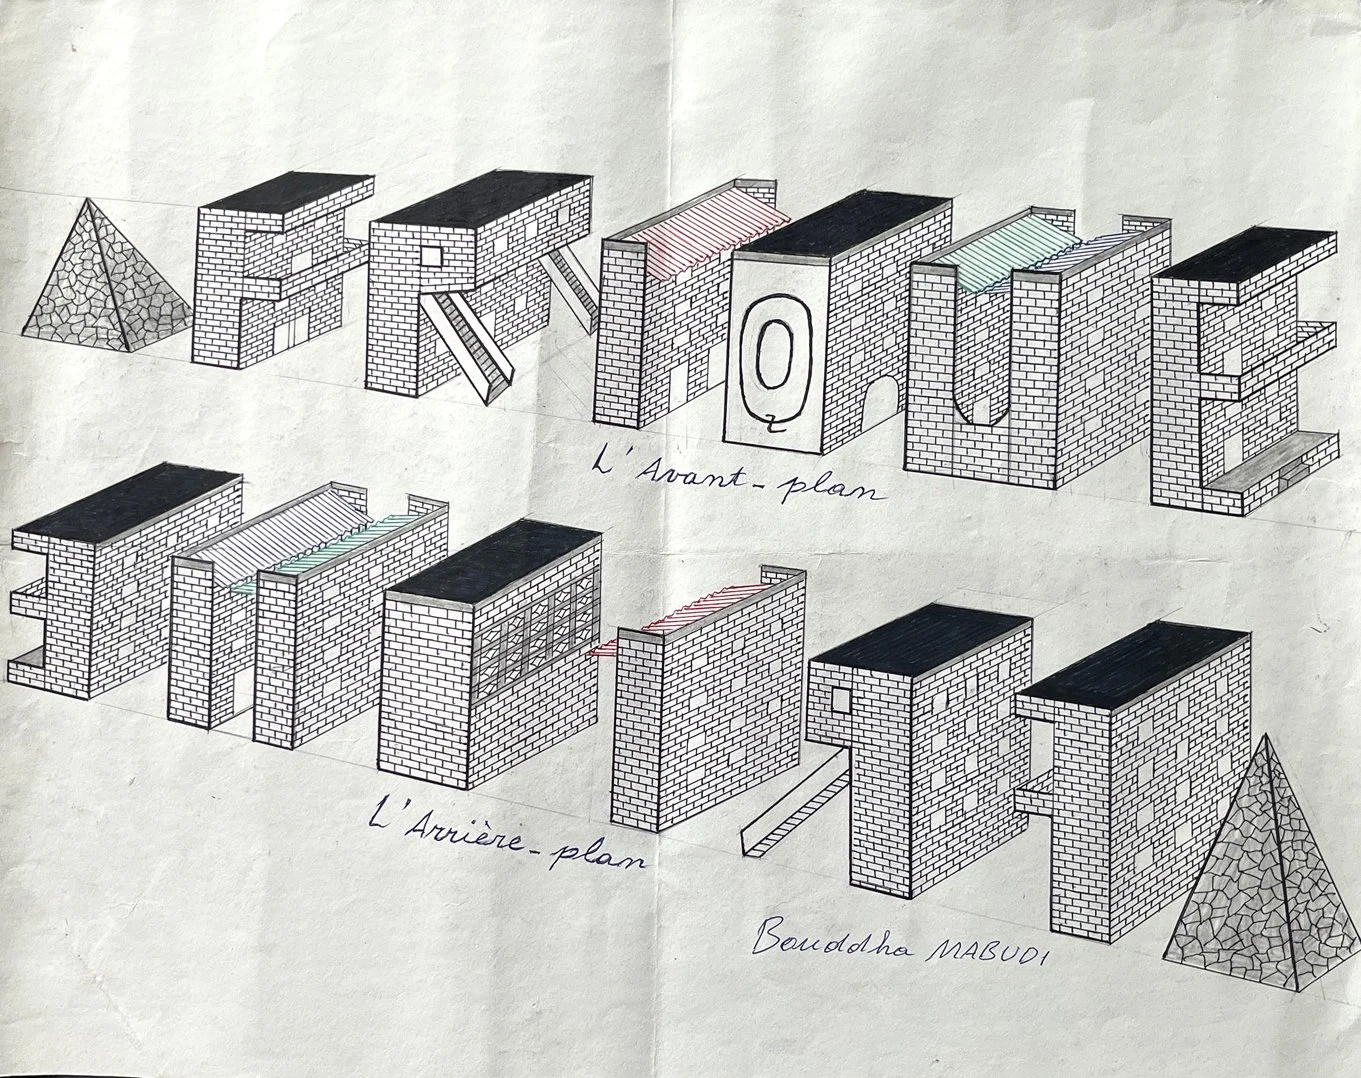 AFRIQUE
L'Avant-plan
L'Arrière-plan
Bouddha MABUDI